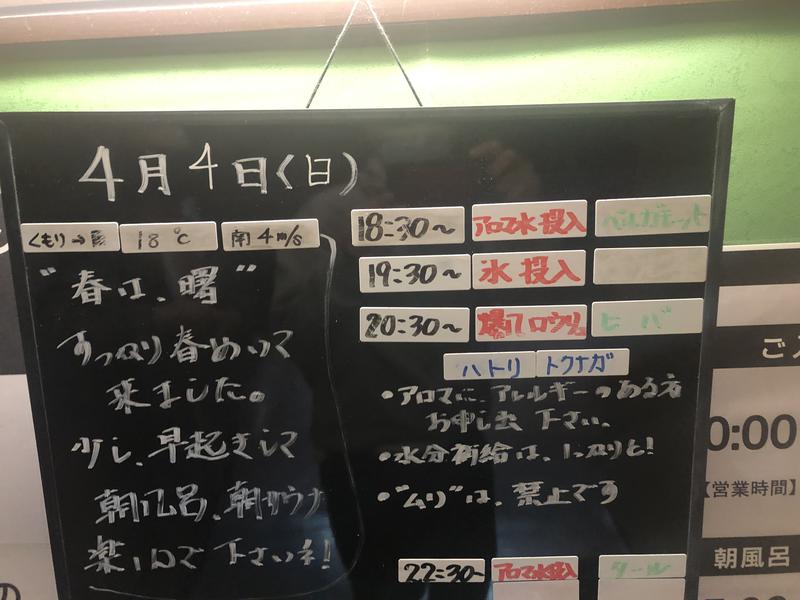 4月4日(日)
くもり→ 18℃ 南4m/s
"春は、曙"
すっかり春めいて
来ました。
少し、早起きして
朝風呂、朝サウナ
楽しんで下さいネ!
18:30~ アロマ水投入 ベルガモット
19:30~ 氷投入
20:30~ 爆風ロウリュ ヒバ
ハトリ トクナガ
・アロマに、アレルギーのある方
お申し出下さい。
・水分補給は、しっかりと!
・"ムリ"は、禁止です
22:30~ アロマ水投入 タール
ご入
0:00
【営業時間】
朝風呂
の